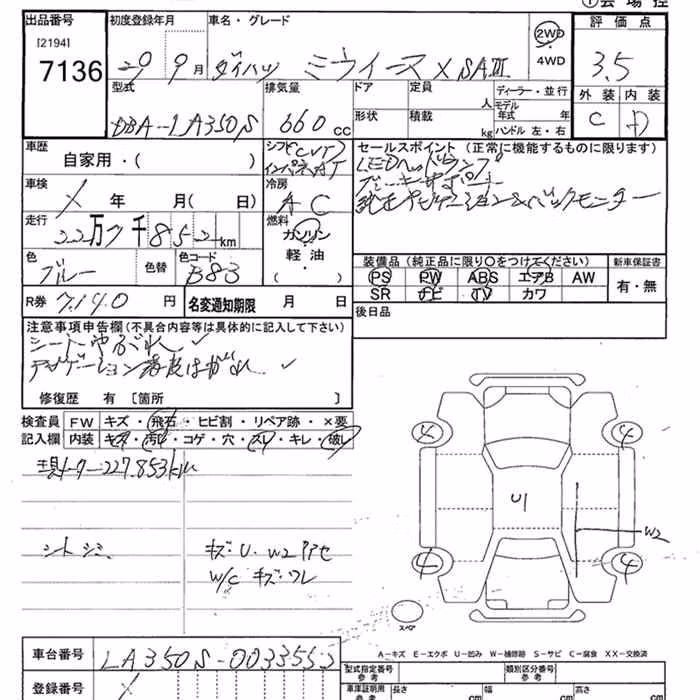 出品番号 初度登録年月 車名・グレード 2WD 評価点
[2194]
7136 29 9月 ダイハツ ミライース X SAⅢ 4WD 3.5
型式 排気量 ドア 定員 人 ディーラー・並行 外装 内装
DBA-LA350S 660cc 形状 積載 kg モデル年式 年 ハンドル 左・右 C D
車歴 シフト セールスポイント(正常に機能するものに限ります)
自家用・( ) CVT インパネAT LEDヘッドランプ
車検 冷房 ブレーキサポート
X 年 月( 日) AC 純正ナビゲーション&バックモニター
走行 燃料
22万7千852km ガソリン
色 色替 色コード 軽油 装備品(純正品に限り○をつけてください) 新車保証書
ブルー B83 ( ) PS PW ABS エアB AW 有・無
R券 7,190円 名変通知期限 月 日 SR ナビ TV カワ
注意事項申告欄(不具合内容等は具体的に記入して下さい) 後日品
シートやぶれ
修復歴 有 [箇所 ]
検査員 FW キズ・飛石・ヒビ割・リペア跡・×要
記入欄 内装 キズ・汚れ・コゲ・穴・スレ・キレ・破レ
現メーター227,853km
シートシミ キズ・U・W2
W/C キズ・ワレ
4 4
U1
W2
4 4
スペア
A-キズ E-エクボ U-凹み W-補修跡 S-サビ C-腐食 XX-交換済
車台番号 LA350S-0033552 型式指定番号 参考 類別区分番号 参考
登録番号 車庫証明用 参考 長さ cm 幅 cm 高さ cm